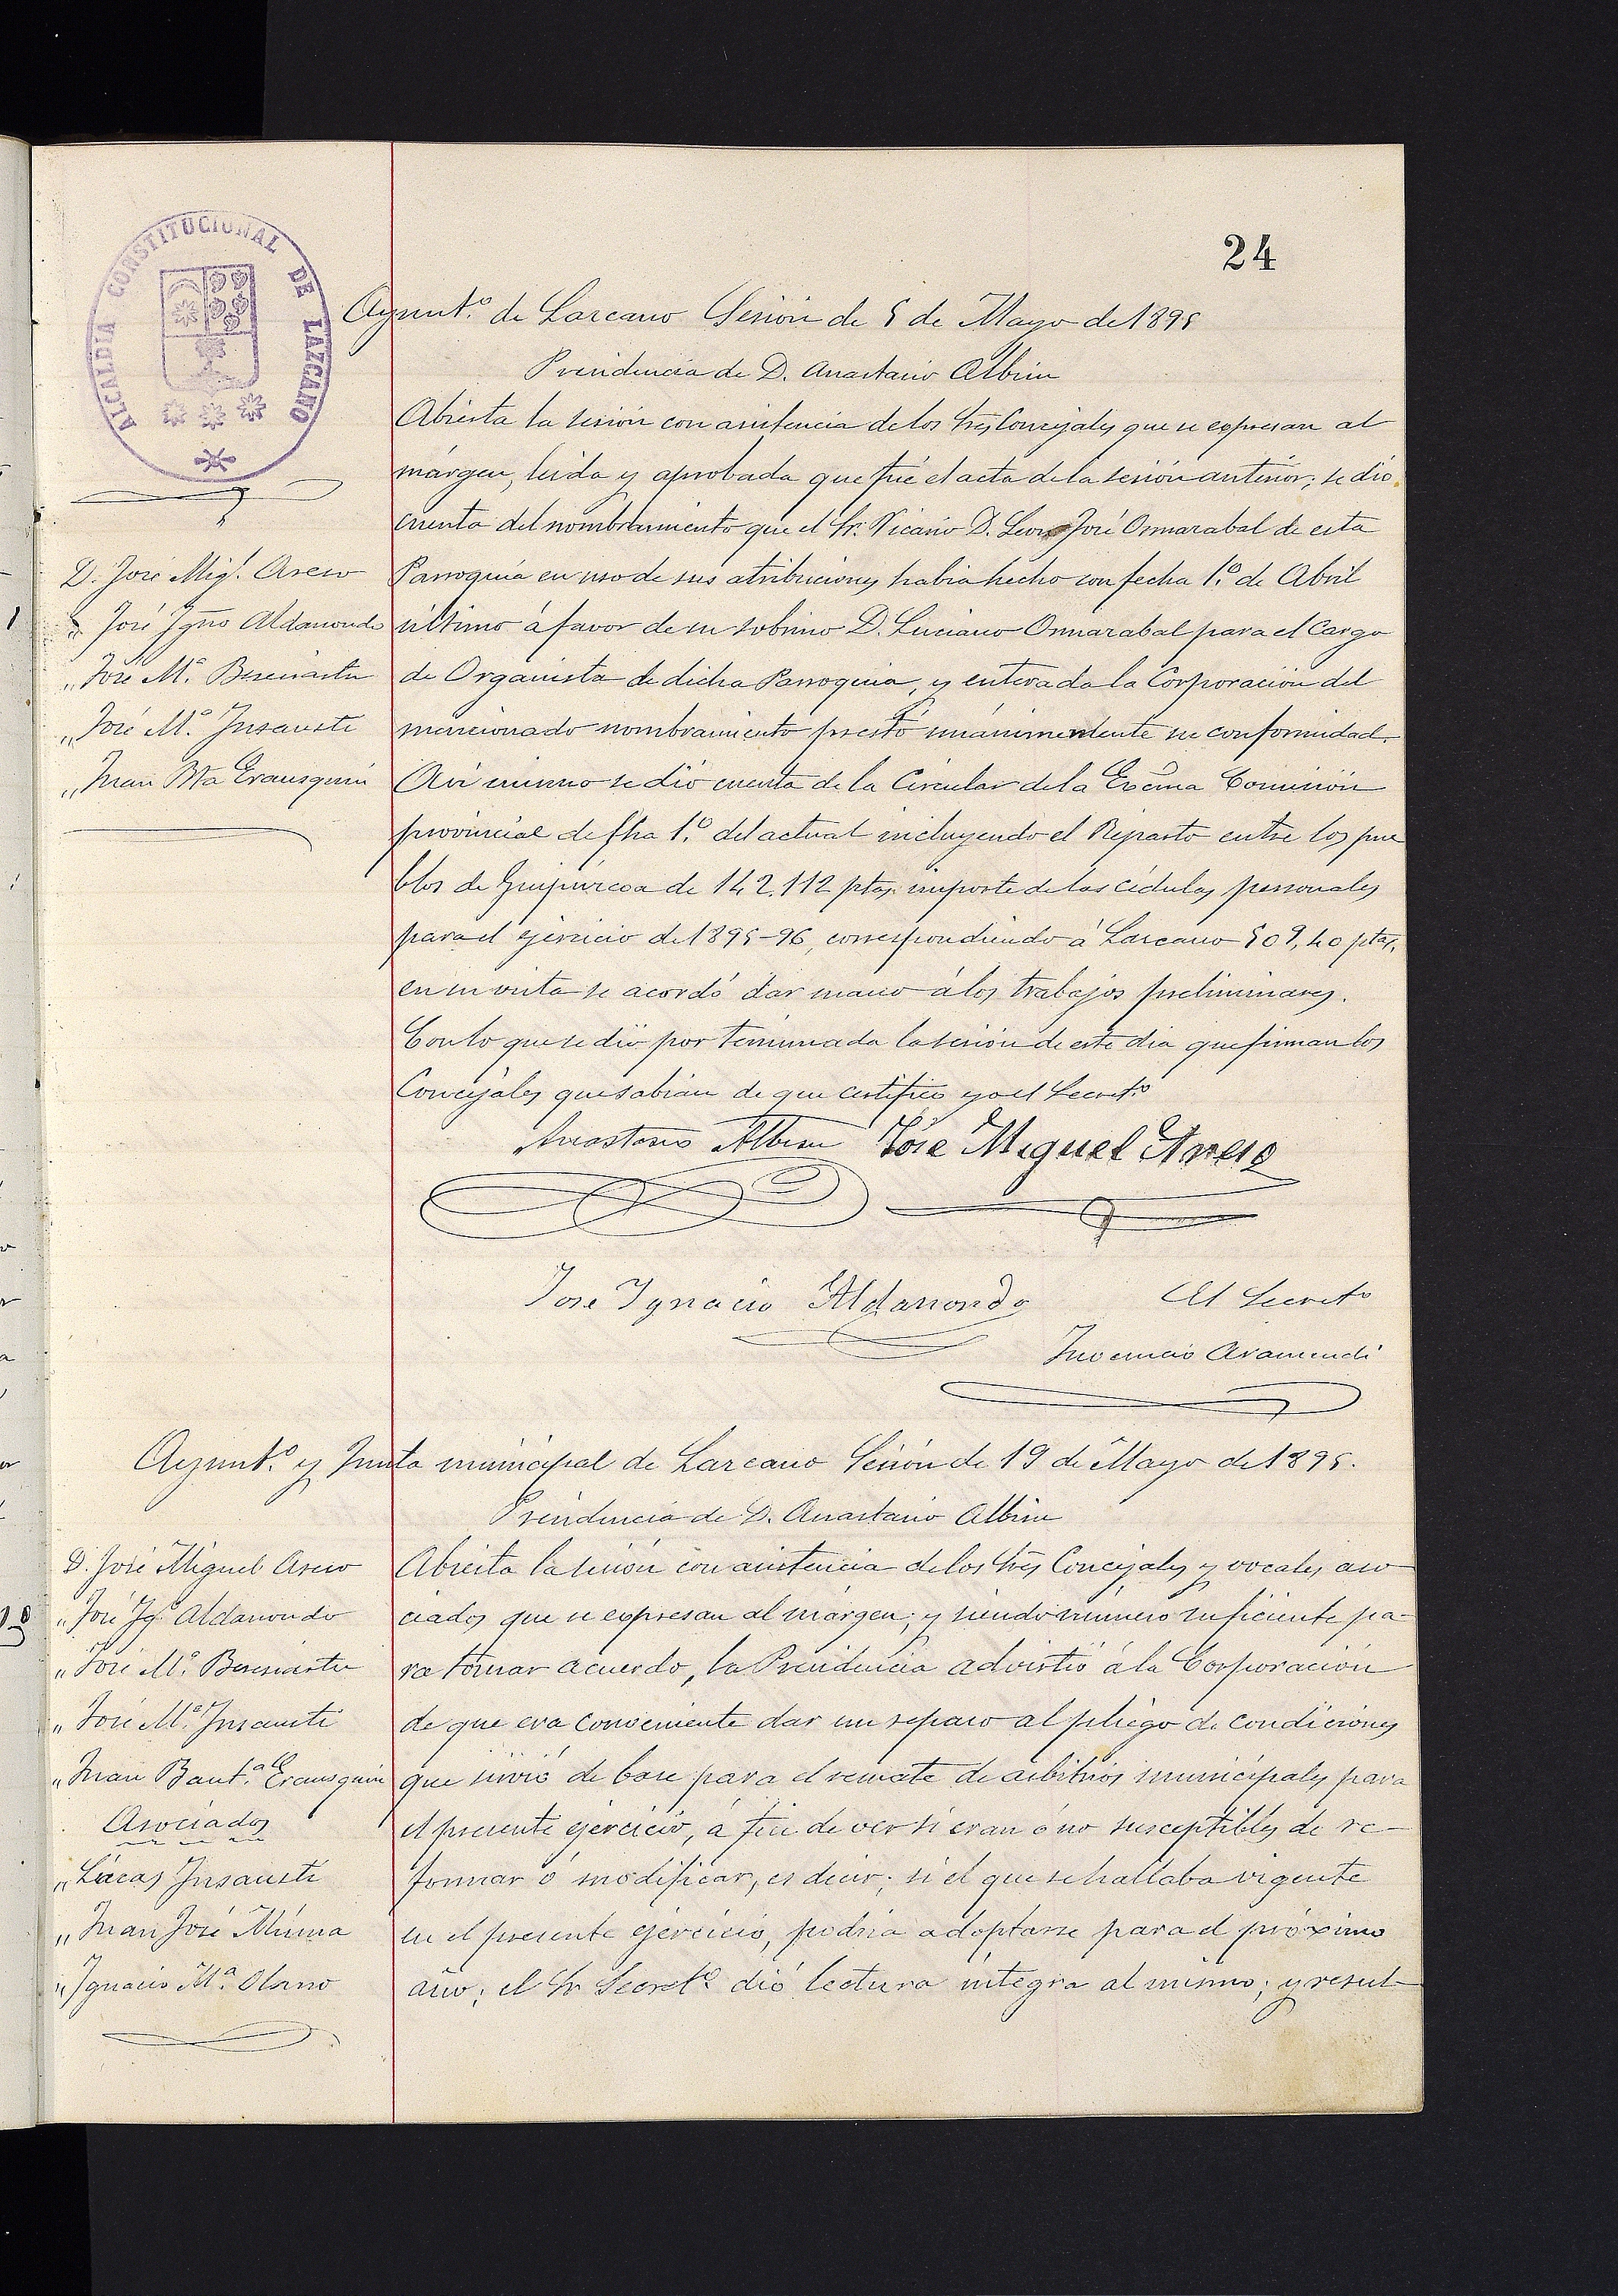 24
ALCALDIA CONSTITUCIONAL DE LAZCANO
Ayunt.º de Lazcano Sesión de 5 de Mayo de 1895
Presidencia de D. Anastasio Albisu
Abierta la sesión con asistencia de los Sres Concejales que se expresan al
márgen, leida y aprobada que fué el acta de la sesión anterior; se dió
cuenta del nombramiento que el Sr. Vicario D. Leon José Ormazabal de esta
Parroquia en uso de sus atribuciones habia hecho con fecha 1.º de Abril
último á favor de su sobrino D. Luciano Ormazabal para el Cargo
de Organista de dicha Parroquia, y enterada la Corporación del
mencionado nombramiento prestó unánimemente su conformidad.
Asi mismo se dió cuenta de la Circular de la Excma Comisión
provincial de fha 1.º del actual incluyendo el Reparto entre los pue
blos de Guipúzcoa de 142.112 ptas. importe de las cédulas personales
para el ejercicio de 1895-96, correspondiendo á Lazcano 509,40 ptas,
en su vista se acordó dar mano á los trabajos preliminares.
Con lo que se dió por terminada la sesión de este dia que firman los
Concejales que sabian de que certifico yo el Secret.º
D. José Mig.l Aseso
" José Ygno Aldasoro
" José M.ª Berasiartu
" José M.ª Insausti
" Juan Bta Erausquin
Anastasio Albisu José Miguel
José Ygnacio
El Secret.º
Inocencio Aramendi
Ayunt.º y Junta municipal de Lazcano Sesión de 19 de Mayo de 1895.
Presidencia de D. Anastasio Albisu
Abierta la sesión con asistencia de los Sres Concejales y vocales aso
ciados que se expresan al márgen; y siendo número suficiente pa-
ra tomar acuerdo, la Presidencia advirtió á la Corporación
de que era conveniente dar un repaso al pliego de condiciones
que sirvió de base para el remate de arbitrios municipales para
el presente ejercicio, á fin de ver si eran ó no susceptibles de re-
formar ó modificar, es decir; si el que se hallaba vigente
en el presente ejercicio, podria adoptarse para el próximo
año; el Sr Secret.º dió lectura íntegra al mismo; y resul
D. José Miguel
" José Yg.º
" José M.ª Berasiartu
" José M.ª Insausti
" Juan Baut.ª Erausquin
Asociados
" Lúcas Insausti
" Juan José Múxica
" Ygnacio M.ª Olano